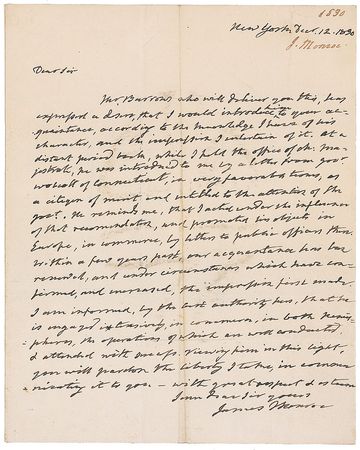 1830
New York Dec. 12. 1830
J. Monroe
Dear Sir
Mr. Burrows who will deliver you this, has
expressed a desire, that I would introduce him to your ac-
quaintance, according to the knowledge I have of his
character, and the impression I entertain of it. At a
distant period back, while I held the office of ch. Ma-
jistrate, he was introduc'd to me by a letter from gov.r
Wolcott of Connecticut, in very favorable terms, as
a citizen of merit, and entitled to the attention of the
gov.t. He reminds me, that I acted under the influence
of that recommendation, and promoted his objects in
Europe, in commerce, by letters to public officers there.
Within a few years past, our acquaintance has been
renewed, and under circumstances which have con-
firmed, and increased, the impression first made.
I am informed, by the best authority here, that he
is engaged extensively, in commerce, in both hemis-
pheres, the operations of which are well conducted,
& attended with success. Viewing him in this light,
you will pardon the liberty I take, in commu-
nicating it to you. – with great respect & esteem
I am dear Sir yours
James Monroe